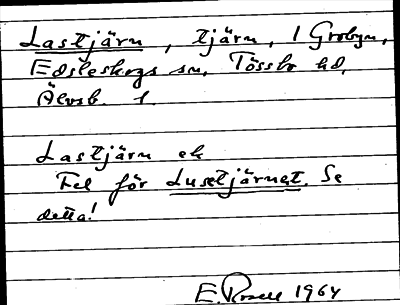 Lastjärn, tjärn, i Grobyn,
Edsleskogs sn, Tössbo hd,
Älvsb. l.
Lastjärn ek
Fel för Lusetjärnet. Se
detta!
E. Rosell 1964